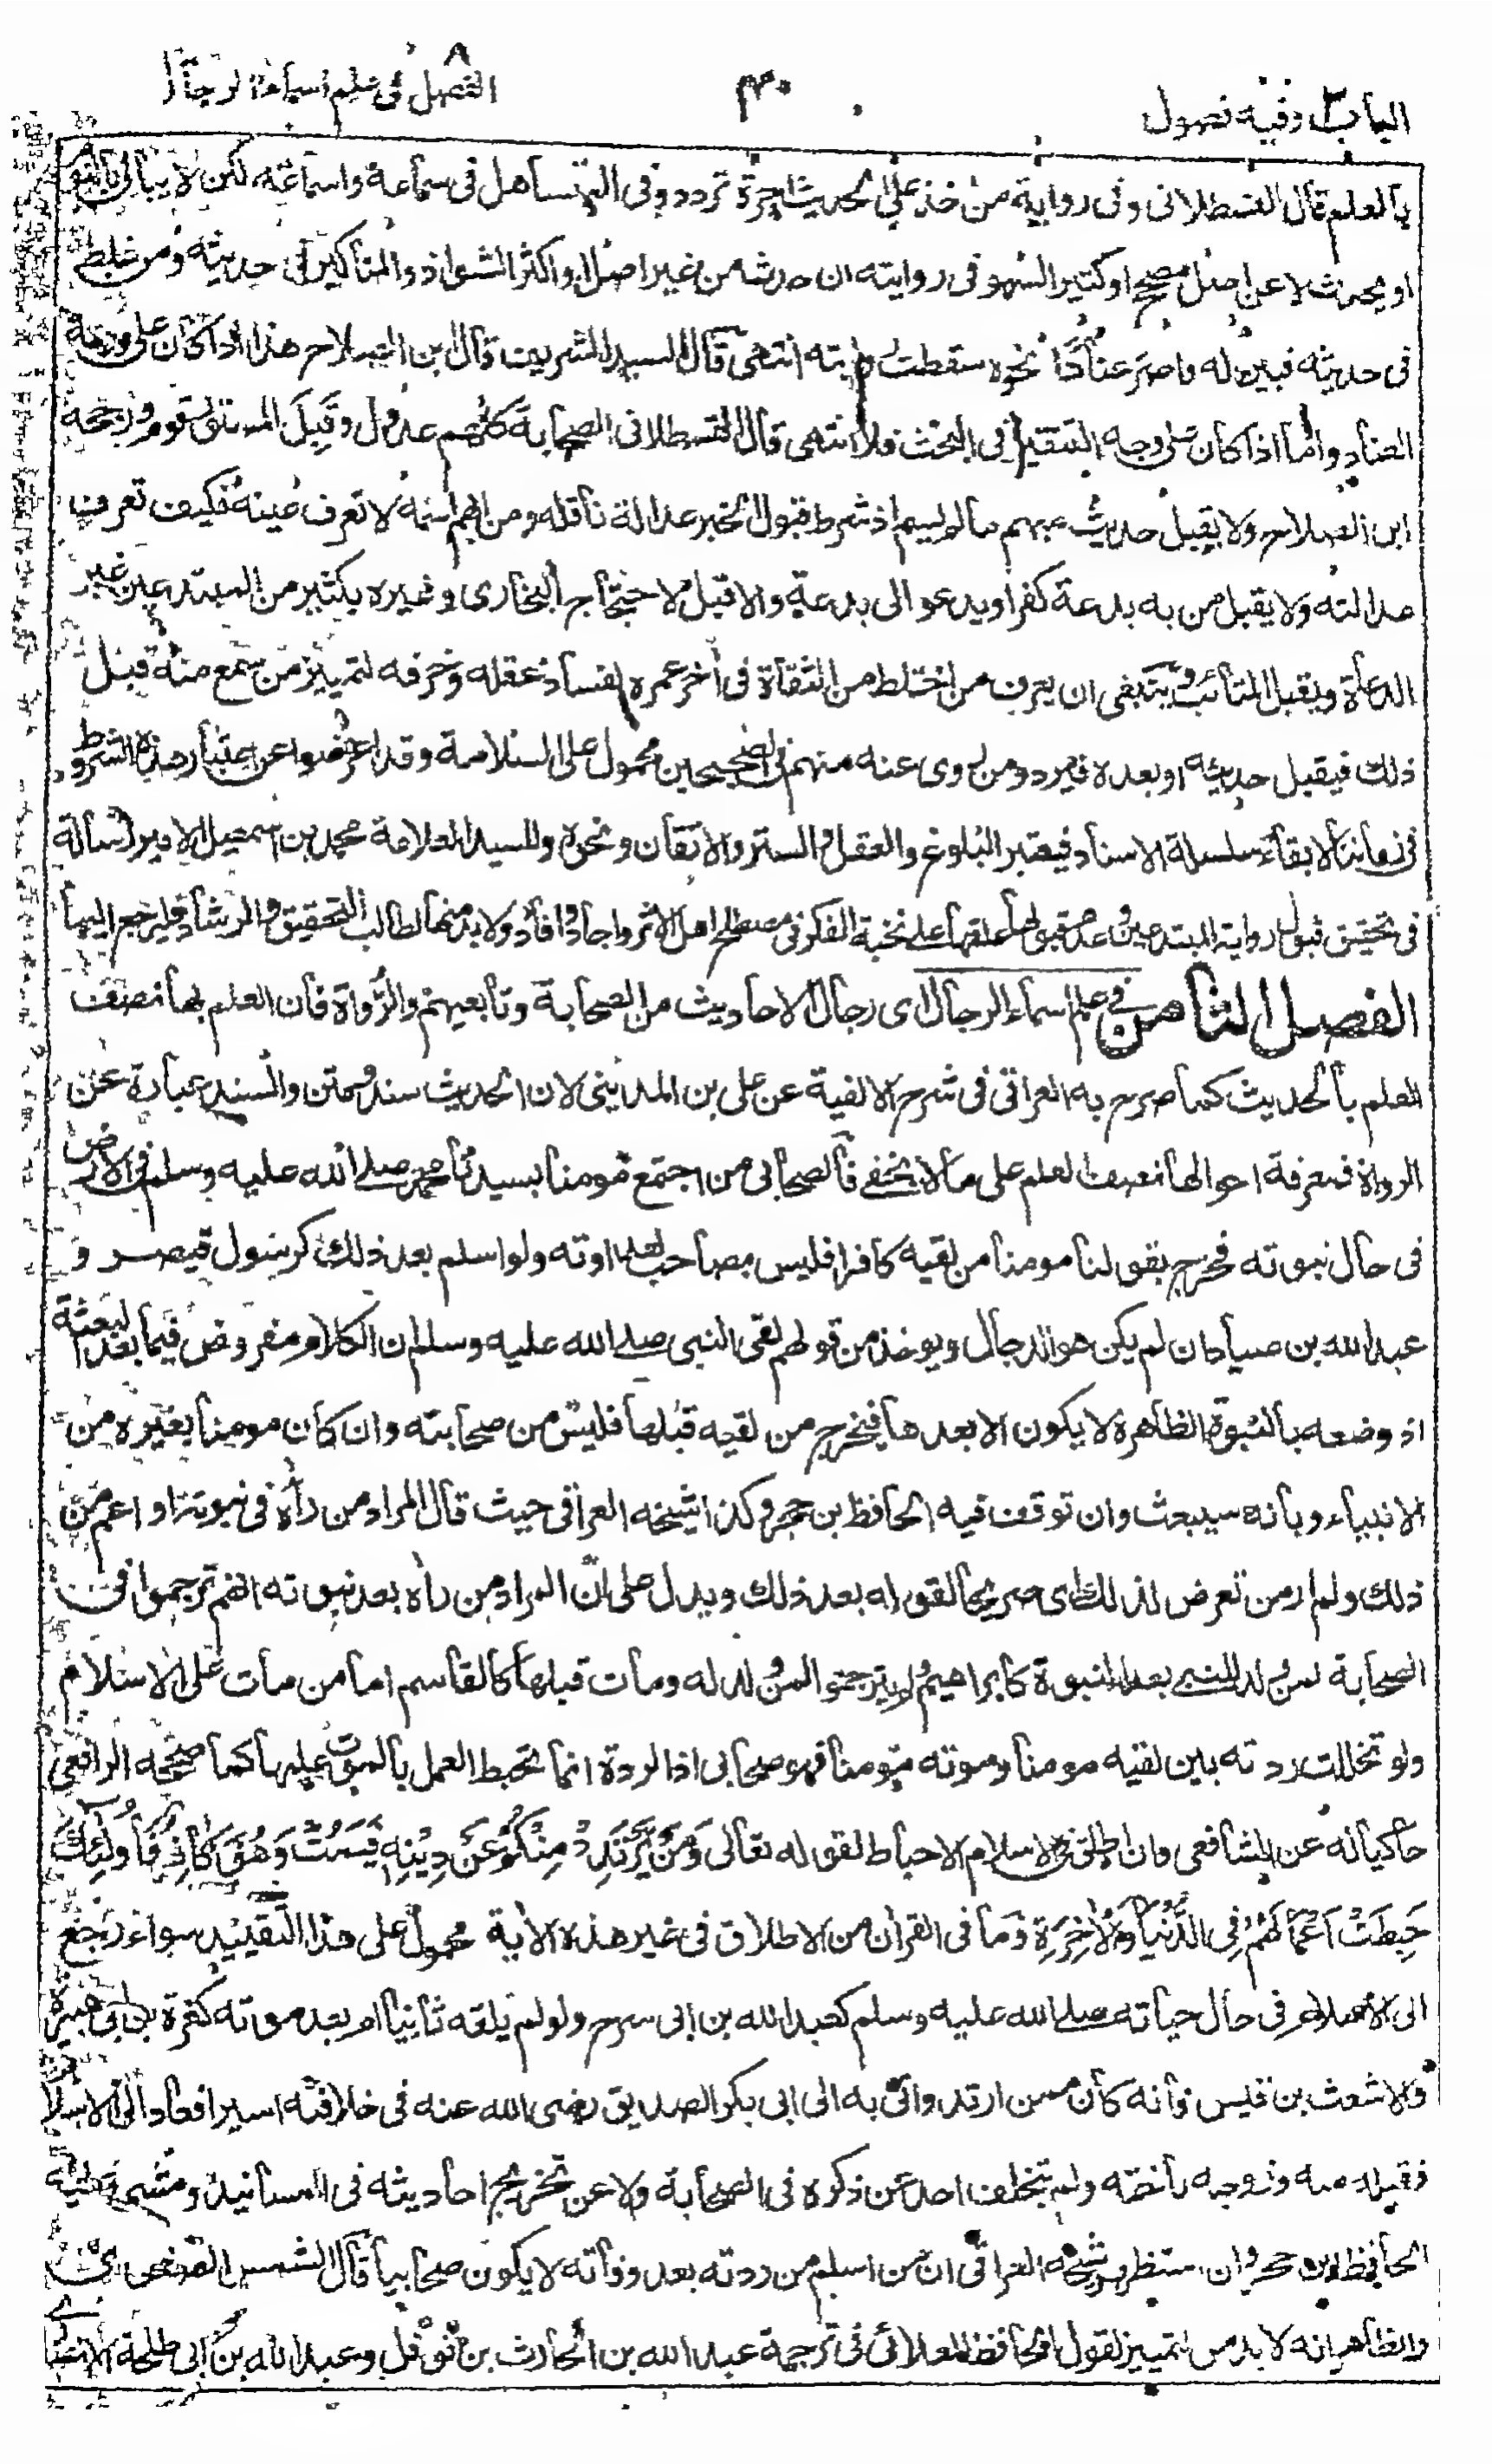 الباب ٢ وفيه فصول
٤٠
الفصل ٨ فى علم اسماء الرجال
بالعلم قال القسطلانى وفى رواية من اخذ على الحديث اجرة تردد وفى المتساهل فى سماعه واسماعه لكن لا يبالى
او يحدث لا عن اصل مصحح او كثير السهو فى روايته ان حدث من غير اصل او اكثر الشواذ والمناكير فى حديثه ومن غلط
فى حديثه فبين له واصر عنادا ونحوه سقطت روايته انتهى قال السيد الشريف قال ابن الصلاح هذا اذا كان على وجه
العناد واما اذا كان على وجه التنقير فى البحث فلا انتهى قال القسطلانى الصحابة كلهم عدول وقبل المستور قوم ورجحه
ابن الصلاح ولا يقبل حديث مبهم مالم يسم اذ شرط قبول الخبر عدالة ناقله ومن ابهم اسمه لا تعرف عينه فكيف تعرف
عدالته ولا يقبل من به بدعة كفر او يدعو الى بدعة والا قبل لاحتجاج البخارى وغيره بكثير من المبتدعين غير
الدعاة ويقبل التائب وينبغى ان يعرف من اختلط من الثقاة فى آخر عمره لفساد عقله وخرفه لتمييز من سمع منه قبل
ذلك فيقبل حديثه او بعده فيرد ومن روى عنه منهم فى الصحيحين محمول على السلامة وقد اعرضوا عن اعتبار هذه الشروط
فى زماننا لابقاء سلسلة الاسناد فيعتبر البلوغ والعقل والستر والاتقان ونحوه وللسيد العلامة محمد بن اسمعيل الامير رسالة
فى تحقيق قبول رواية المبتدعين وعدم قبولها علقها على نخبة الفكر فى مصطلح اهل الاثر واجاد وافاد ولا بد منها لطالب التحقيق والرشاد فليرجع اليها
الفصل الثامن فى علم اسماء الرجال اى رجال الاحاديث من الصحابة وتابعيهم والرواة فان العلم بها نصف
العلم بالحديث كما صرح به العراقى فى شرح الالفية عن على بن المدينى لان الحديث سند ومتن والسند عبارة عن
الرواة فمعرفة احوالها نصف العلم على ما لا يخفى فالصحابى من اجتمع مومنا بسيدنا محمد صلى الله عليه وسلم فى الارض
فى حال نبوته فخرج بقولنا مومنا من لقيه كافرا فليس بصاحب لعداوته ولو اسلم بعد ذلك كرسول قيصر و
عبد الله بن صياد ان لم يكن هو الدجال ويوخذ من قولهم لقى النبى صلى الله عليه وسلم ان الكلام مفروض فيما بعد البعثة
اذ وضعه بالنبوة الظاهرة لا يكون الا بعدها فيخرج من لقيه قبلها فليس من صحابته وان كان مومنا بغيره من
الانبياء وبانه سيبعث وان توقف فيه الحافظ بن حجر وكذا شيخه العراقى حيث قال المراد من رآه فى نبوته او اعم من
ذلك ولم ار من تعرض لذلك اى صريحا لقوله بعد ذلك ويدل على ان المراد من رآه بعد نبوته انهم ترجموا فى
الصحابة لمن ولد للنبى بعد النبوة كابراهيم ولم يترجموا لمن ولد له ومات قبلها كالقاسم اما من مات على الاسلام
ولو تخللت ردته بين لقيه مومنا وموته مومنا فهو صحابى اذ الردة انما تحبط العمل بالموت عليها كما صححه الرافعى
حاكيا له عن الشافعى وان اطلق فى الاسلام الاحباط لقوله تعالى وَمَنْ يَّرْتَدِدْ مِنْكُمْ عَنْ دِيْنِهٖ فَيَمُتْ وَهُوَ كَافِرٌ فَاُولٰئِكَ
حَبِطَتْ اَعْمَالُهُمْ فِى الدُّنْيَا وَالْاٰخِرَةِ وما فى القران من الاطلاق فى غير هذه الاية محمول على هذا التقييد سواء رجع
الى الاسلام فى حال حياته صلى الله عليه وسلم كعبد الله بن ابى سرح ولو لم يلقه ثانيا ام بعد موته كقرة بن هبيرة
والاشعث بن قيس فانه كان ممن ارتد واتى به الى ابى بكر الصديق رضى الله عنه فى خلافته اسيرا فعاد الى الاسلام
فقبله منه وزوجه باخته ولم يتخلف احد عن ذكره فى الصحابة ولا عن تخريج احاديثه فى المسانيد ومشى عليه
الحافظ ابن حجر وان استظهر شيخه العراقى ان من اسلم من ردته بعد وفاته لا يكون صحابيا قال الشمس
والظاهر انه لا بد من التمييز لقول الحافظ العلائى فى ترجمة عبد الله بن الحارث بن نوفل وعبد الله بن ابى طلحة الانصارى